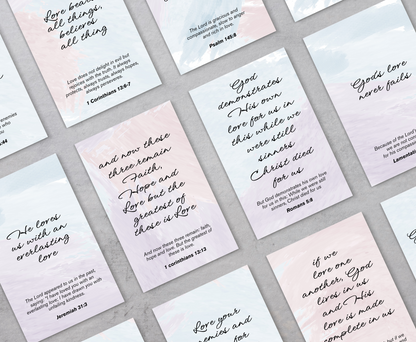 Love bears
all things,
believes
all thing
Love does not delight in evil but
rejoices with the truth. It always
protects, always trusts, always hopes,
always perseveres.
1 Corinthians 13:6-7
The Lord is gracious and
compassionate, slow to anger
and rich in love.
Psalm 145:8
enemies
who
you
44
God
demonstrates
His own
love for us in
this while we
were still
sinners
Christ died
for us
But God demonstrates his own love
for us in this: While we were still
sinners, Christ died for us.
Romans 5:8
God's love
never fails
Because of the Lord's
we are not con
for his compassion
Lamentatio
and now these
three remain
Faith,
Hope and
Love but the
greatest of
these is Love
And now these three remain: faith,
hope and love. But the greatest of
these is love.
1 corinthians 13:13
He loves
us with an
everlasting
love
The Lord appeared to us in the past,
saying: "I have loved you with an
everlasting love; I have drawn you with
unfailing kindness.
Jeremiah 31:3
Love your
enemies and
for
if we
love one
another, God
lives in us
and His
love is made
complete in us
but if we